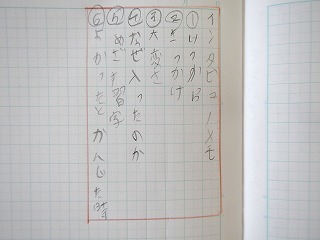 インタビューメモ
①いつから
②きっかけ
③大変さ
④なぜ入ったのか
⑤めざす習字
⑥よかったとかんじた時